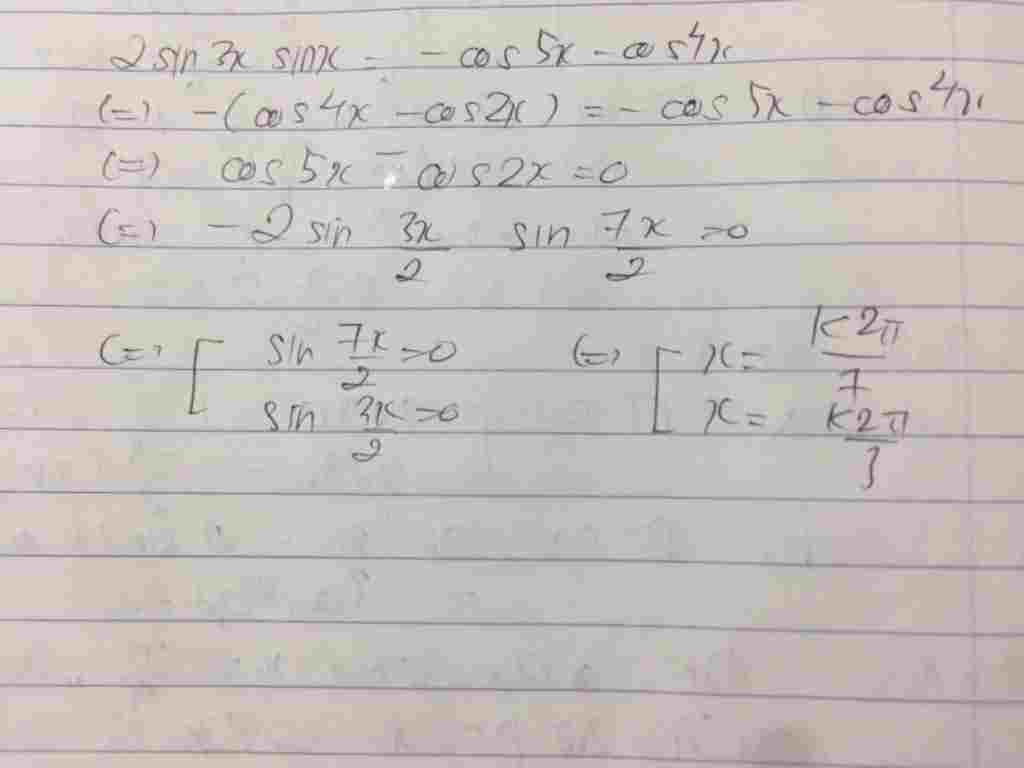 2sin3x sinx = -cos5x - cos4x
(=) -(cos4x - cos2x) = - cos5x - cos4x
(=) cos5x - cos2x = 0
(=) -2 sin 3x/2 sin 7x/2 = 0
(=) [ sin 7x/2 = 0 (=) [ x = k2π/7
sin 3x/2 = 0 x = k2π/3